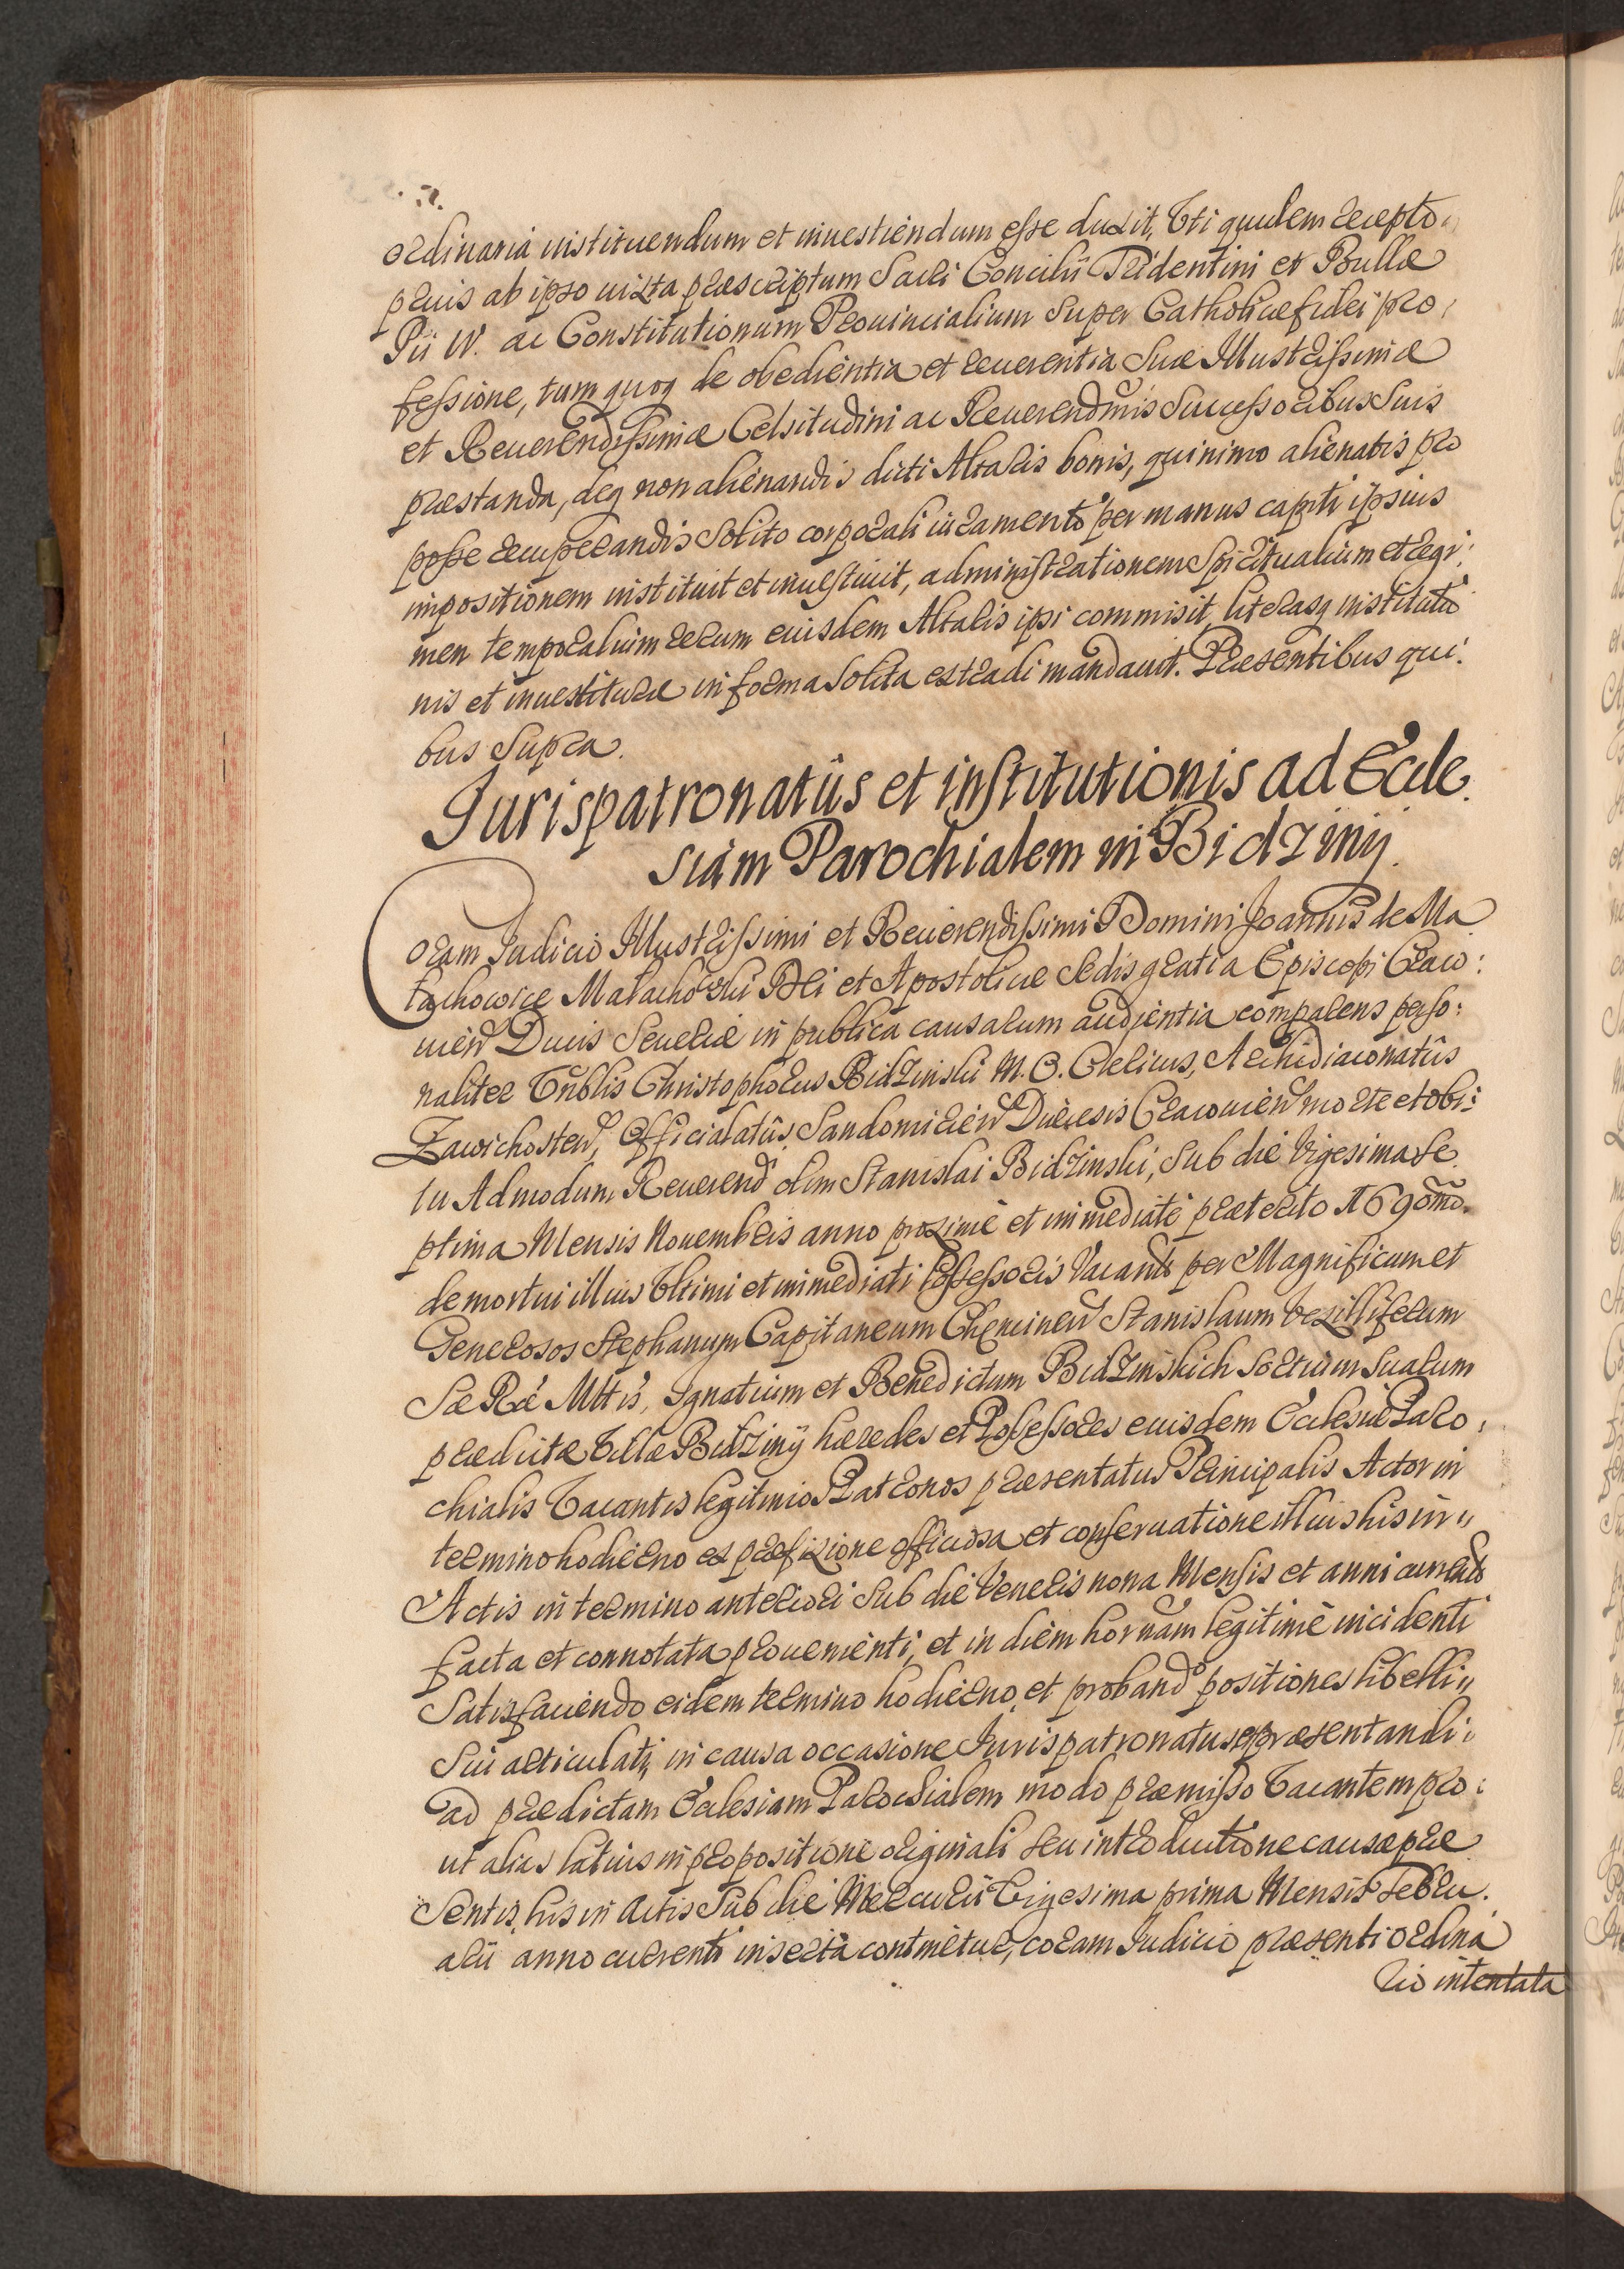 ordinaria instituendum et inuestiendum esse duxit, Uti quidem recepto
prius ab ipso iuxta praescriptum Sacri Concilii Tridentini et Bullæ
Pii IV. ac Constitutionum Prouincialium Super Catholicæ fidei pro:
fessione, tum quoq de obedientia et reuerentia Suæ Illustrissimæ
et Reuerendissimæ Celsitudini ac Reuerendmis Successoribus Suis
præstanda, deq non alienandis dicti Altaris bonis, quinimo alienatis pro
posse recuperandis Solito corporali iuramento per manus capiti ipsius
impositionem instituit et inuestiuit, administrationem Spiritualium et regi:
men temporalium rerum eiusdem Altaris ipsi commisit, literasq institutio
nis et inuestituræ in forma Solita extradi mandauit. Præsentibus qui:
bus Supra.
Jurispatronatûs et institutionis ad Eccle.
siam Parochialem in Bidziny.
Coram Judicio Illustrissimi et Reuerendissimi Domini Joannis de Ma
łachowice Małachowski Dei et Apostolicæ Sedis gratia Episcopi Craco:
uien Ducis Seueriæ in publica causarum audientia comparens perso:
naliter Vnblis Christophorus Bidzinski M. O. Clericus, Archidiaconatûs
Zawichosten, Officialatûs Sandomirien Diæcesis Cracouien morte et obi:
tu Admodum Reuerend olim Stanislai Bidzinski, Sub die Vigesima Se
ptima Mensis Nouembris anno proximè et immediatè præterito 1690mo.
demortui illius Vltimi et immediati Possessoris Vacant per Magnificum et
Generosos Stephanum Capitaneum Chęcinen Stanislaum Vexilliferum
Sæ Ræ Mttis, Ignatium et Benedictum Bidzinskich Sortium Suarum
prædictæ Villæ Bidziny hæredes et Possessores eiusdem Ecclesiæ Paro:
chialis Vacantis legitimos Patronos præsentatus Principalis Actor in
termino hodierno ex præfixione officiosa et conseruatione illius his in
Actis in termino anteriori Sub die Veneris nona Mensis et anni current
facta et connotata prouenienti, et in diem hornam legitimè incidenti
Satisfaciendo eidem termino hodierno et proband positiones libelli
Sui articulati, in causa occasione Jurispatronatus et præsentandi
ad prædictam Ecclesiam Parochialem modo præmisso Vacantem pro:
ut alias latius in propositione originali seu introductione causæ præ
Sentis his in Actis Sub die Mercurii Vigesima prima Mensis Febru.
arii anno currenti inserta continetur, coram Judicio præsenti ordina
rio intentata